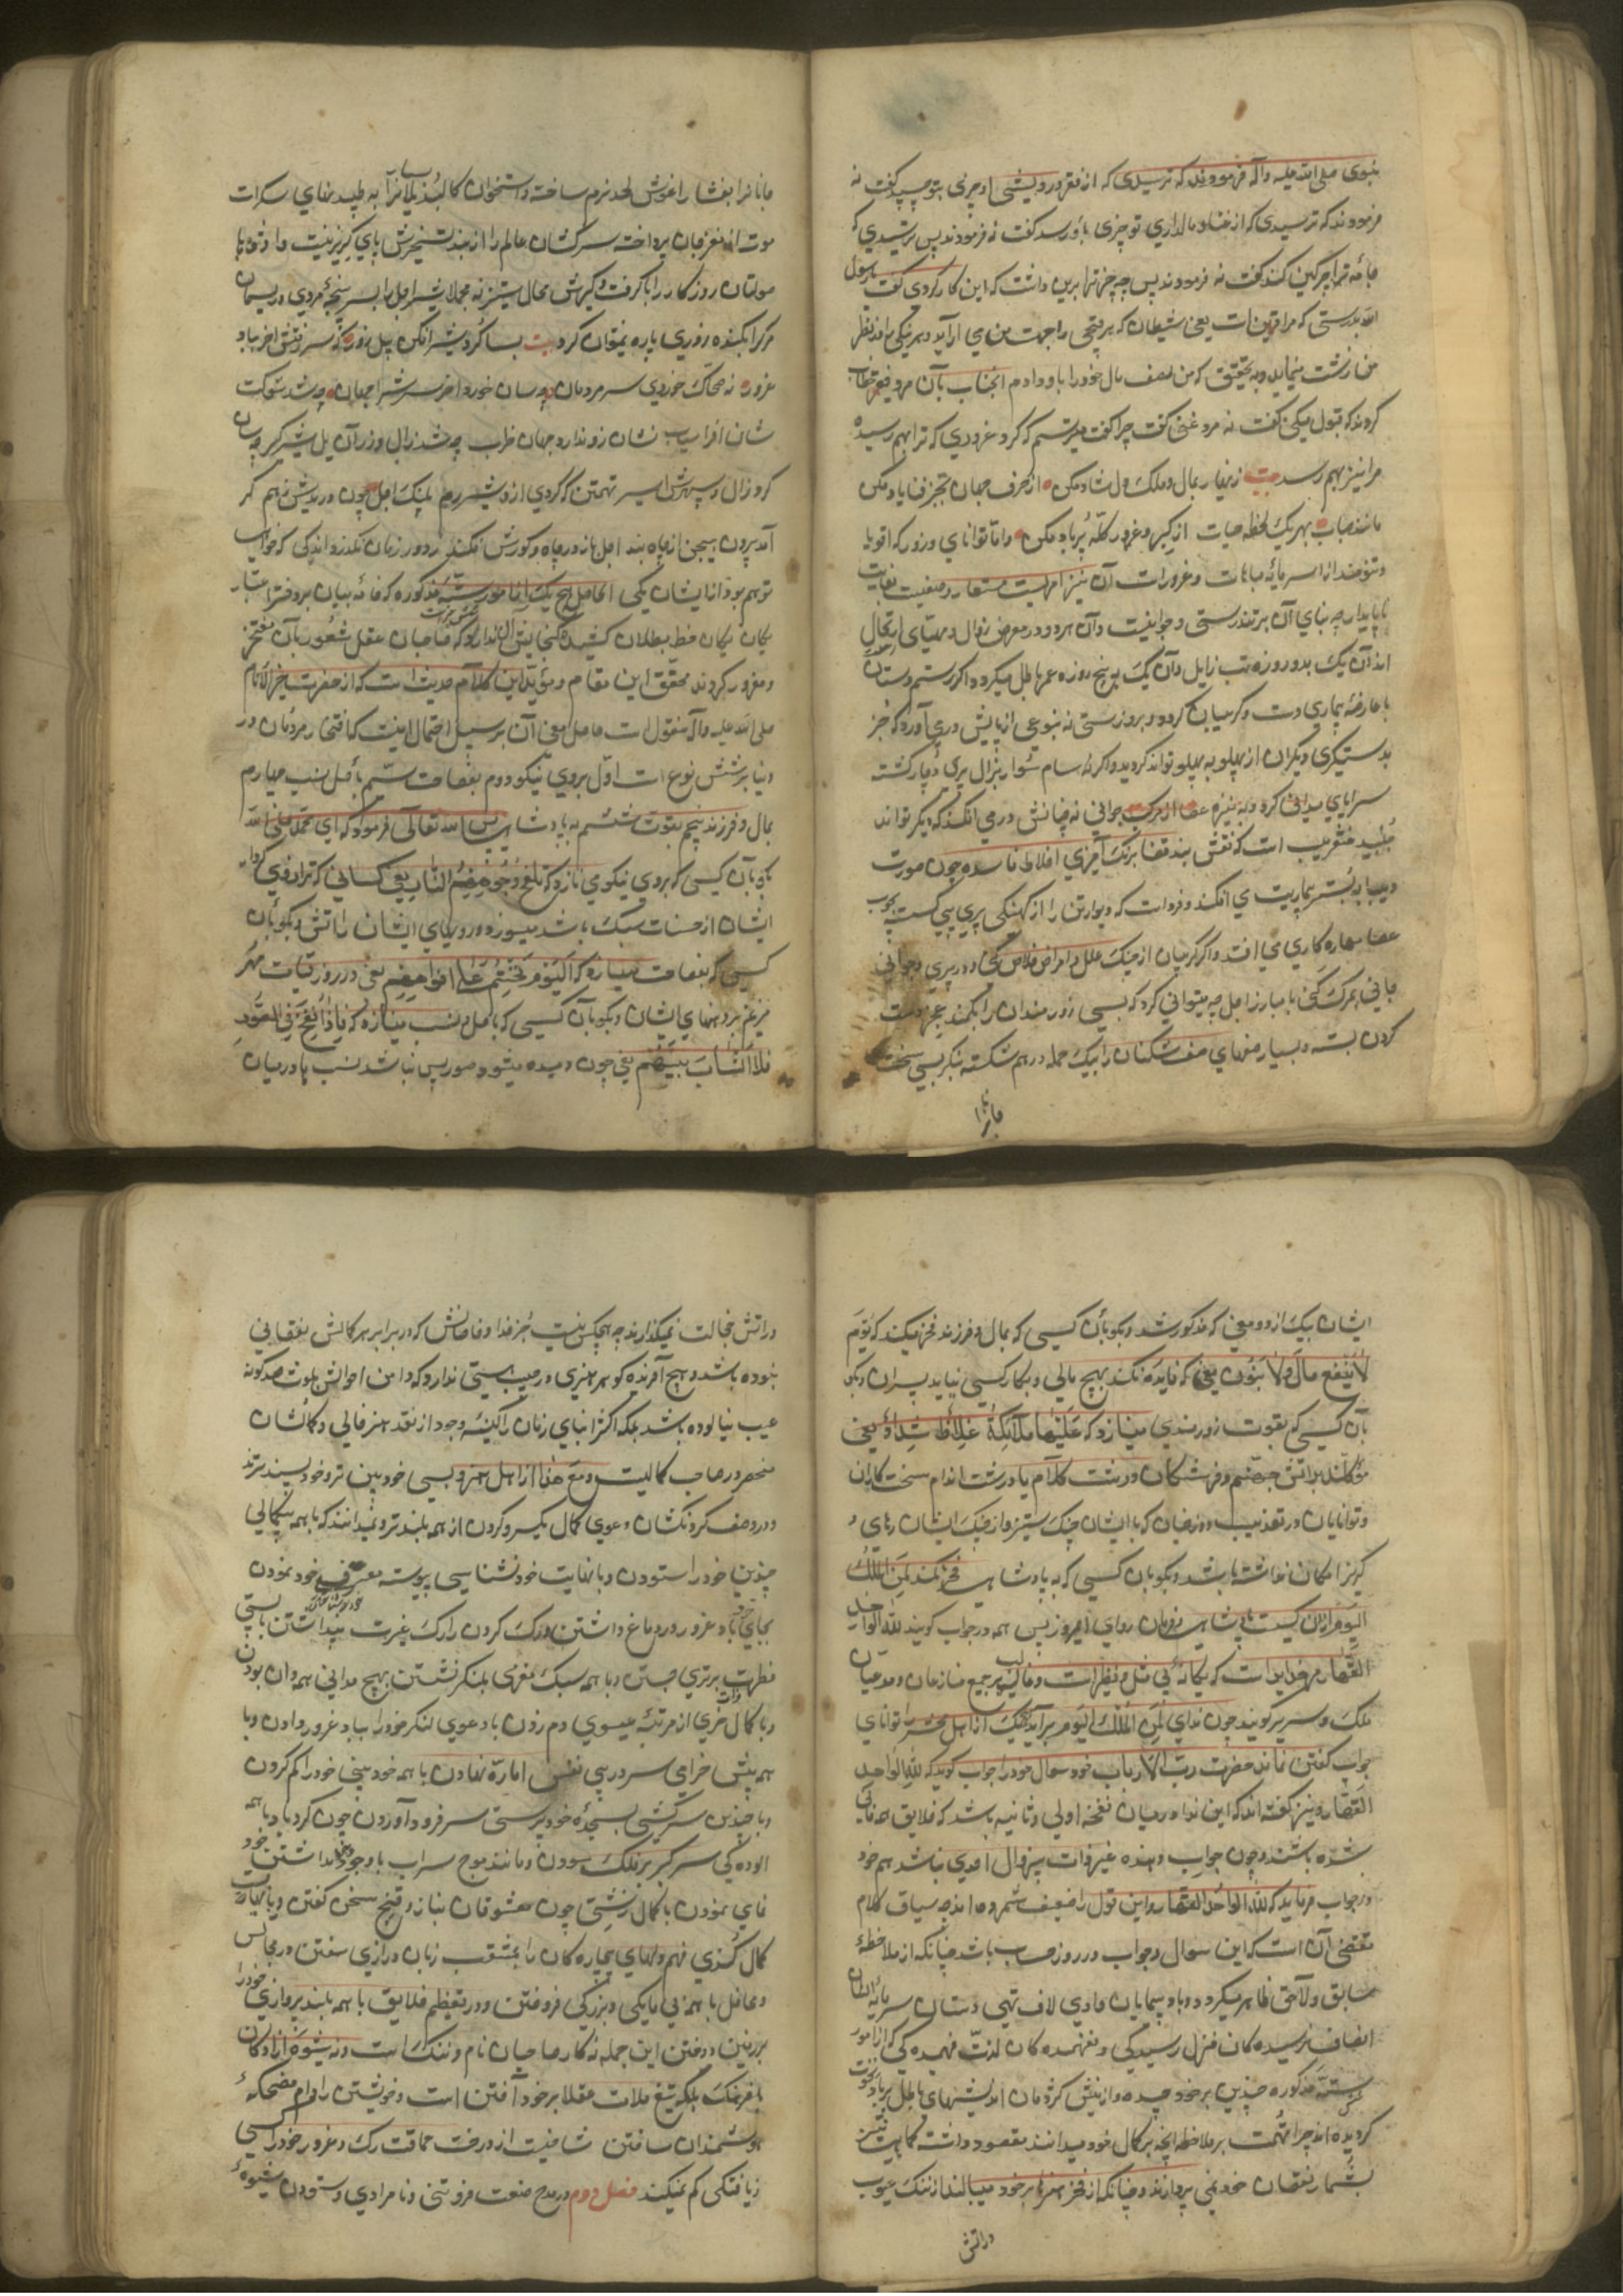 نبوی صلی الله علیه وآله فرمودند که ترسیدی که از فقر و درویشی او چیزی بتو چسپد گفت نه
فرمودند که ترسیدی که از غنا و مالداری تو چیزی باو رسد گفت نه فرمودند پس ترسیدی که
جامه ترا چرکین کند گفت نه فرمودند پس چه چیز ترا برین داشت که این کار کردی گفت یا رسول
الله بدرستی که مرا قرین است یعنی شیطان که هر قبیحی را جهت من می آراید و هر نیکی را در نظر
من زشت مینماید و به تحقیق که من نصف مال خود را باو دادم آنجناب بآن مرد فقیر خطاب
کردند که قبول میکنی گفت نه مرد غنی گفت چرا گفت میترسم که کبر و غروری که ترا بهم رسیده
مرا نیز بهم رسد بیت زنهار بمال و ملک دل شاد مکن از حرف جهان بجز فنا یاد مکن
مانند حباب بهر یک لحظه حیات از کبر و غرور کله پر باد مکن و اما توانایی و زور که اقویا
و تنومند انرا سرمایه مباهات و غرور است آن نیز امریست مستعار و صفتیست بغایت
ناپایدار چه بنای آن بر تندرستی و جوانیست و آن هر دو در معرض زوال و مهیای ارتحال
اند آن یک بدو روزه تب زایل و آن یک به پنج روزه عمر باطل میگردد و اگر رستم دستان
با عارضه بیماری دست و گریبان گردد بروز سستی نه بنوعی از پایش در می آورد که جز
بدستگیری دیگران از پهلو به پهلو تواند گردید و اگر نه سام سوار بزال پیری دچار گشته
سراپای میدانی کرد و به نیزه عصا از مرکب جوانی نه چنانش در می افکند که دیگر تواند
جنبید عنقریب است که نقش بند قضا برنگ آمیزی اخلاط فاسده چون صورت
دیبا به بستر بیماریت می افکند و فرداست که دیوار تن را از کهنگی پیری پی گسسته بچوب
عصا بیچاره کاری می افتد و اگر گریبان از چنگ علل و امراض خلاص کنی و در پیری و جوانی
جانی بمرگ کنی با مبارز اجل چه میتوانی کرد که بسی زورمندان را بکمند عجز دست
گردن بسته و بسیار صفهای صف شکنان را بیک حمله در هم شکسته بنگر بسی سخت
جانان را
جانانرا بفشار آغوش لحد نرم ساخته و استخوان کالبد یلانرا به طپیدنهای سکرات
موت از مغز جان پرداخته سرکشان عالم را از بند تسخیرش پای گریز نیست و از توانا
صولتان روزگار را با گرفت و گیرش مجال ستیز نه مجملا شیر اجل را بسر پنجه مردی و ریسمان
مرگ را بکنده زوری پاره نمیتوان کرد بیت بسا گرد شیر افکن پیل زور که سر رفتش آخر بباد
غرور نه ضحاک خوردی سر مردمان چه سان خورد آخر سرش را جهان چه شد شوکت
شان افراسیاب نشان زو ندارد جهان خراب چه شد زال و زر آن یل شیر گیر چه سان
کرد زال سپهرش اسیر تهمتن که کردی ازو شیر رم پلنگ اجل چون دریدش ز هم گر
آمد برون بیجن از چاه بند اجل باز در چاه گورش فکند ز دور زمان نگذرد اندکی که خواب
توهم بود از ایشان یکی الحاصل هیچ یک از امور سته مذکوره که خامه بیان بر دفتر اعتبار
یکان یکان خط بطلان کشید گنجایش آن ندارد که صاحبان عقل و شعور بآن مفتخر
و مغرور گردند محقق این مقام و مؤید این کلام حدیث است که از حضرت خیر الانام
صلی الله علیه وآله منقول است حاصل معنی آن بر سبیل اجمال اینست که افتخار مردمان در
دنیا بر شش نوع است اول بروی نیکو دوم بفصاحت سیم باصل و نسب چهارم
بمال و فرزند پنجم بقوت ششم به پادشاهی پس الله تعالی فرمود که ای محمد صلی الله
بگو بآن کسی که بروی نیکو می نازد که تلفح وجوههم النار یعنی کسانی که ترازوی
ایشان از حسنات سبک باشد میسوزد رویهای ایشان را آتش و بگو بآن
کسی که بفصاحت مینازد که الیوم نختم علی افواههم یعنی در روز قیامت مهر
میزنم بر دهنهای ایشان و بگو بآن کسی که باصل و نسب مینازد که فاذا نفخ فی الصور
فلا انساب بینهم یعنی چون دمیده میشود صور پس نباشد نسب ها در میان
ایشان بیک از دو معنی که مذکور شد و بگو بآن کسی که بمال و فرزند فخر میکند که یوم
لا ینفع مال ولا بنون یعنی که فایده نکند هیچ مالی و بکار کسی نیاید پسران و بگو
بآن کسی که بقوت و زورمندی مینازد که علیها ملائکة غلاظ شداد یعنی
موکلند بر آتش جهنم فرشتگان درشت کلام یا درشت اندام سخت کاران
و توانایان در تعذیب دوزخیان که با ایشان جنگ و ستیز و از جنگ ایشان رهایی و
گریز امکان نداشته باشد و بگو بآن کسی که به پادشاهی فخر کند لمن الملک
الیوم از آن کیست پادشاهی و فرمان روایی امروز پس همه در جواب گویند لله الواحد
القهار مر خدایراست که یگانه بی مثل و نظیر است و غالب بر جمیع منازعان و مدعیان
ملک و سریر گویند چون ندای لمن الملک الیوم برآید هیچیک از اهل محشر را توانای
جواب گفتن نماند حضرت رب الارباب خود سوال خود را جواب گوید که لله الواحد
القهار و نیز گفته اند که این ندا در میان نفخه اولی و ثانیه باشد که خلایق همه فانی
شده باشند و چون جواب دهنده غیر ذات بیزوال احدی نباشد هم خود
در جواب فرماید که لله الواحد القهار و این قول را ضعیف شمرده اند چه سیاق کلام
مقتضی آن است که این سوال و جواب در روز حساب باشد چنانکه از ملاحظه
سابق و لاحق ظاهر میگردد و باد پیمایان وادی لاف تهی دستان سرمایه
انصاف نرسیده کان منزل رسیدگی و نفهمیده کان لذت فهمیده گی که از امور
سته مذکوره چندین بر خود چیده و از بینش کژ گمان اندیشهای باطل پر باد نخوت
گردیده اند چرا همت بر ملاحظه آنچه بر کمال خود میدانند مقصود داشته گاهی نیز
بشمار نقصان خود نمی پردازند و چنانکه از فخر هنرها بر خود میبالند از ننگ عیوب
در آتش
در آتش خجالت نمیگدازند چه هیچکس نیست جز خدا و خاصانش که در برابر هر کمالش نقصانی
نبوده باشد و هیچ آفریده کو هر هنری در جیب هستی ندارد که دامن احوالش بلوث صد گونه
عیب نیالوده باشد بلکه اکثر ابنای زمان را کیسه وجود از نقد هنر خالی و کمالشان
منحصر در صاحب کمالیست و مع هذا از اهل هنر و بسی خودبین تر و خود پسند ترند
و در وصف گردنکشان دعوی کمال یکسر و گردن از همه بلندتر و نمیدانند که با همه بیکمالی
چندین خود را ستودن و با نهایت خود نشناسی پیوسته معرف خود نمودن
بجای خود باد غرور در دماغ داشتن و ترک کردن را رگ غیرت پنداشتن با پستی
فطرت برتری جستن و با همه سبک مغزی بلنگر نشستن بهیچ مدانی همه دان بودن
و با کمال خری از مرتبه عیسوی دم زدن با دعوی لنگر خود را بباد غرور دادن و با
همه پیش خرامی سر در پی نفس اماره نهادن با همه خود بینی خود را گم کردن
و با چندین سرکشی بسجده خود پرستی سر فرود آوردن چون گردباد با همه
آلوده گی سر کبر بر فلک سودن و مانند موج سراب با وجود نداشتن خود
نمایی نمودن با کمال زشتی چون معشوقان بناز و غنج سخن گفتن و با نهایت
کمال کندی فهم دلهای بیچاره کان را بمثقب زبان درازی سفتن در مجالس
و محافل با همه بی مایگی و بزرگی فروختن و در تعظیم خلایق با همه بلند پروازی خود را
بر زمین دوختن این جمله نه کار صاحبان نام و ننگ است و نه شیوه آزادگان
با فرهنگ بلکه تیغ ملامت عقلا بر خود آختن است و خویشتن را دام مضحکه
هوشمندان ساختن شاخیست از درخت حماقت رگ و غرور خود را کسی
زیافتگی کم نمیکند فصل دوم در مدح صفت فروتنی و نامرادی و ستودن شیوه